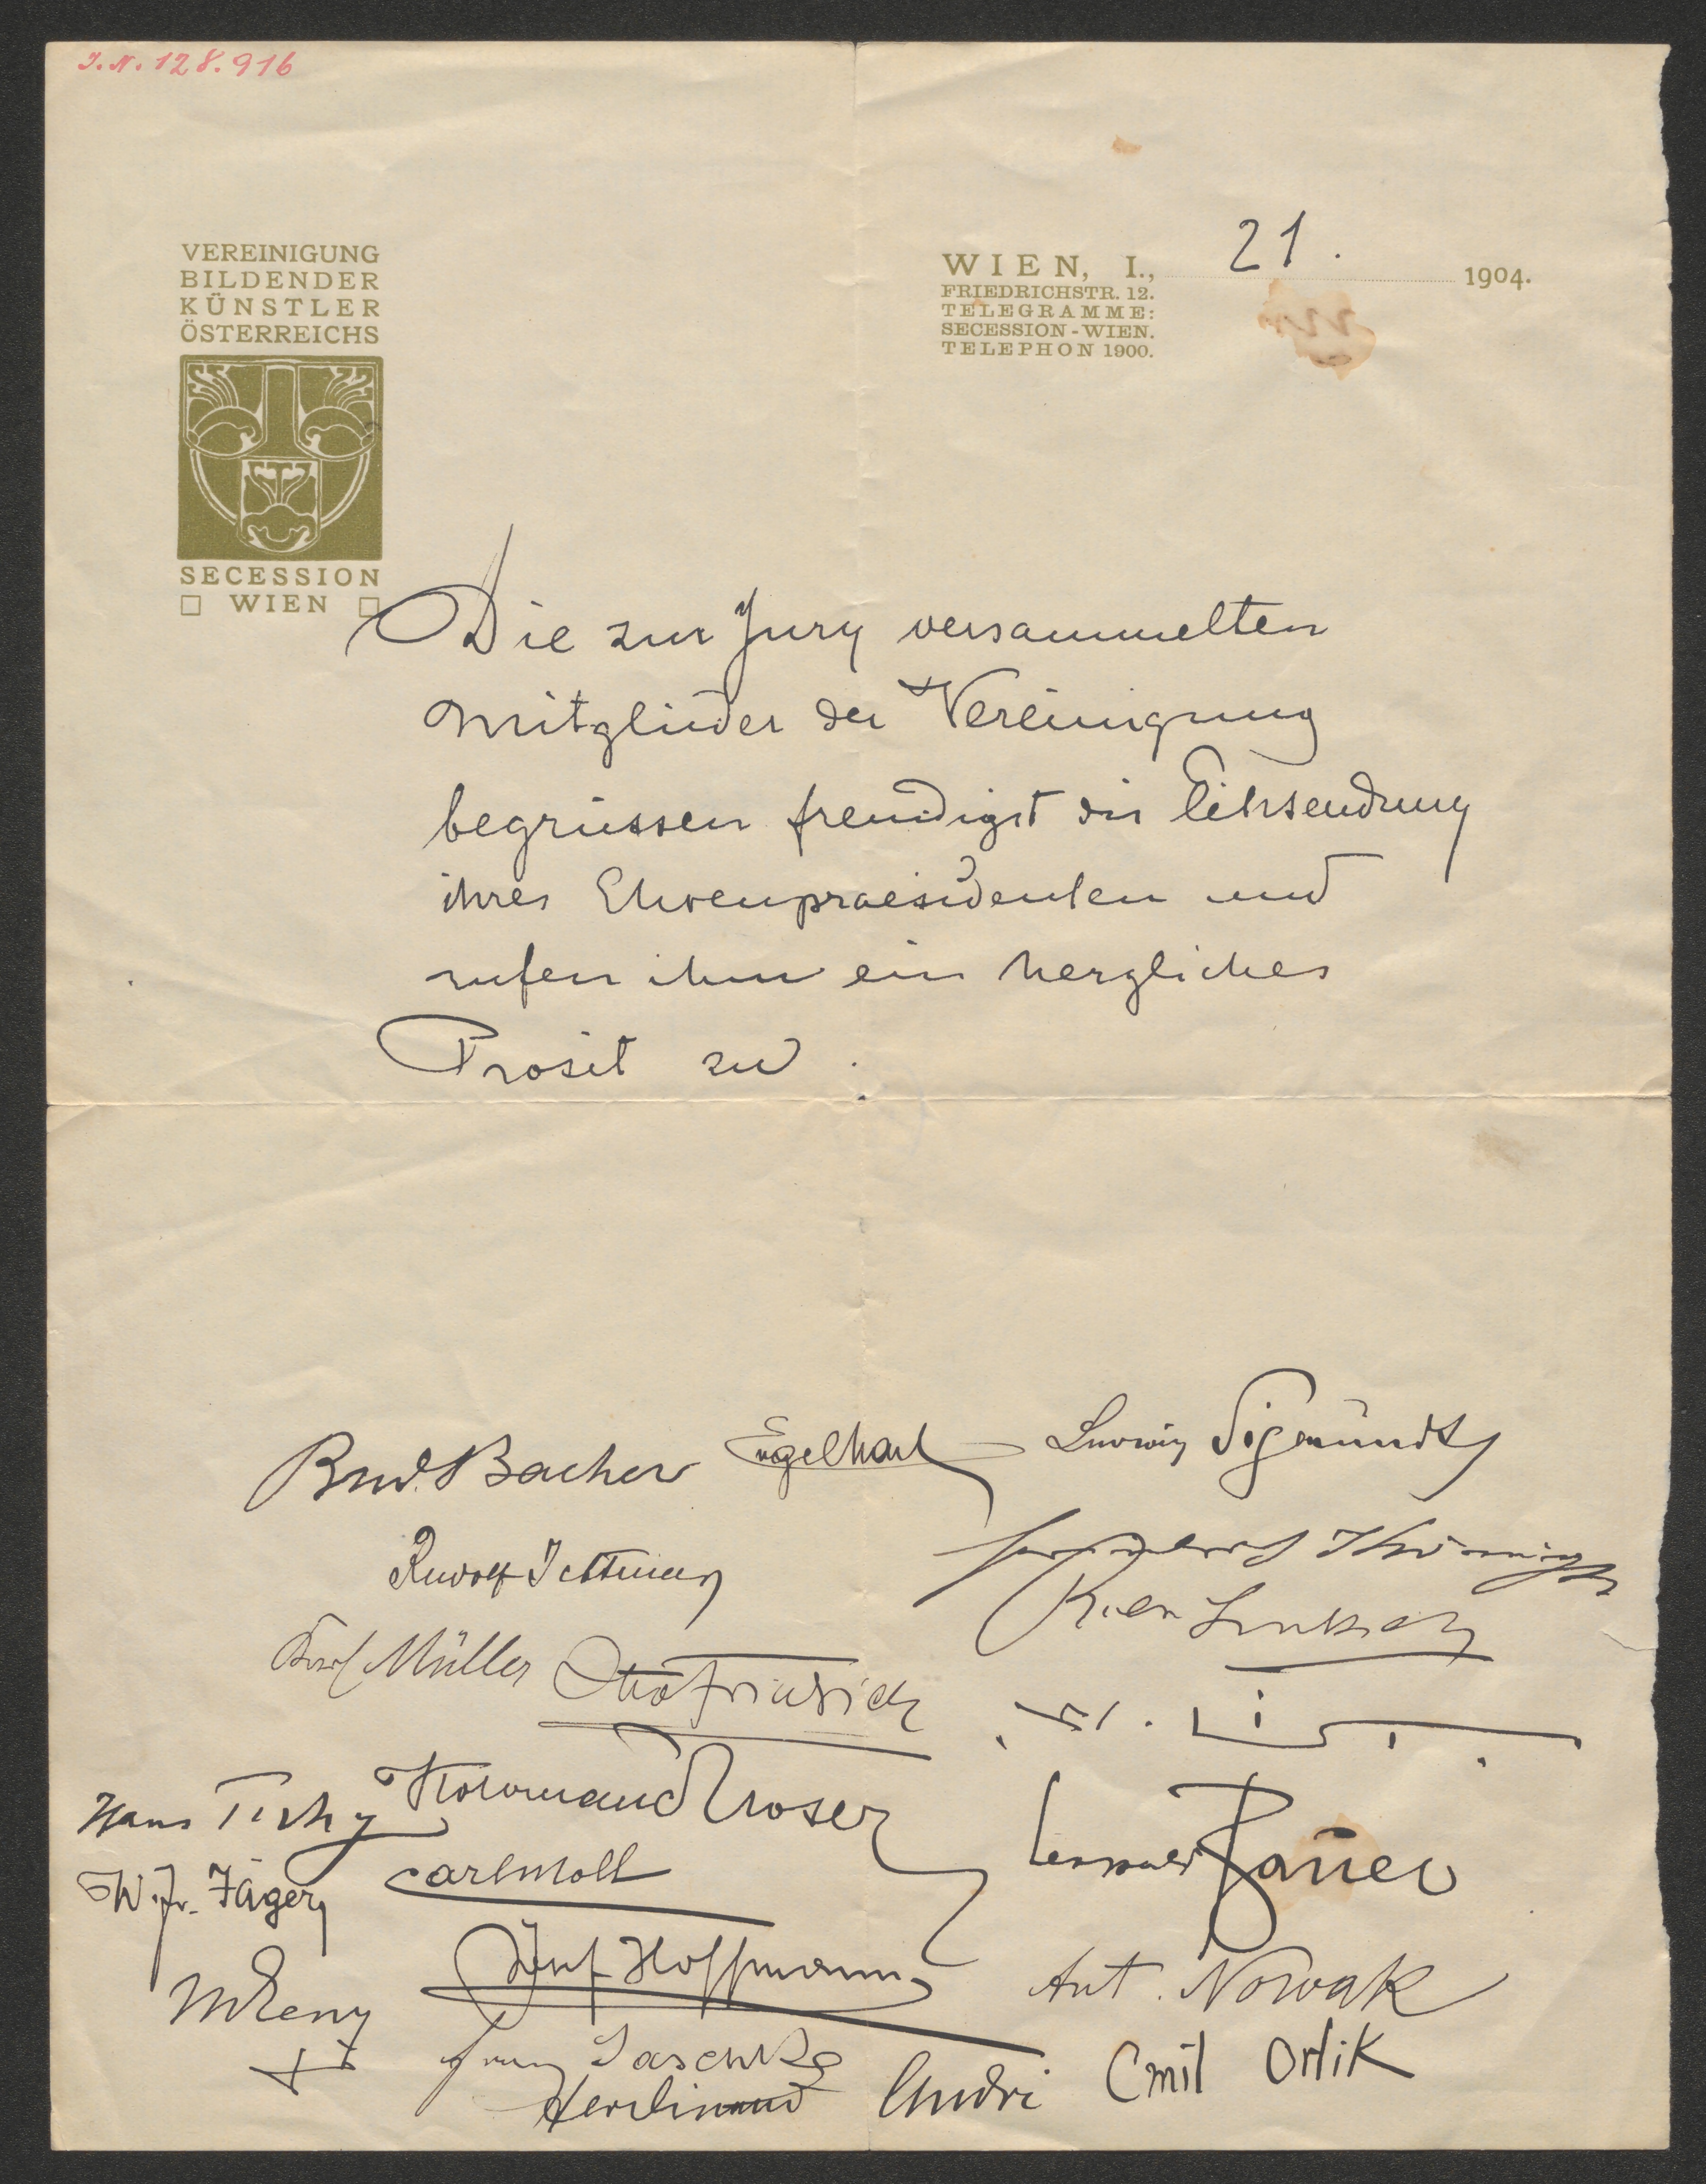 J.N. 128.916
VEREINIGUNG
BILDENDER
KÜNSTLER
ÖSTERREICHS
SECESSION
WIEN
WIEN, I., 21. 1904.
FRIEDRICHSTR. 12.
TELEGRAMME:
SECESSION-WIEN.
TELEPHON 1900.
Die zur Jury versammelten
Mitglieder der Vereinigung
begrüssen freudigst die Einsendung
ihres Ehrenpraesidenten und
rufen ihm ein herzliches
Prosit zu.
Rud. Bacher Engelhart Ludwig Sigmundt
Rudolf Jettmar
Karl Müller Otto Friedrich
Hans Tichy Koloman Moser Leopold Bauer
W. Fr. Jäger Carl Moll
Josef Hoffmann Ant. Nowak
Jaschke
Ferdinand Andri Emil Orlik